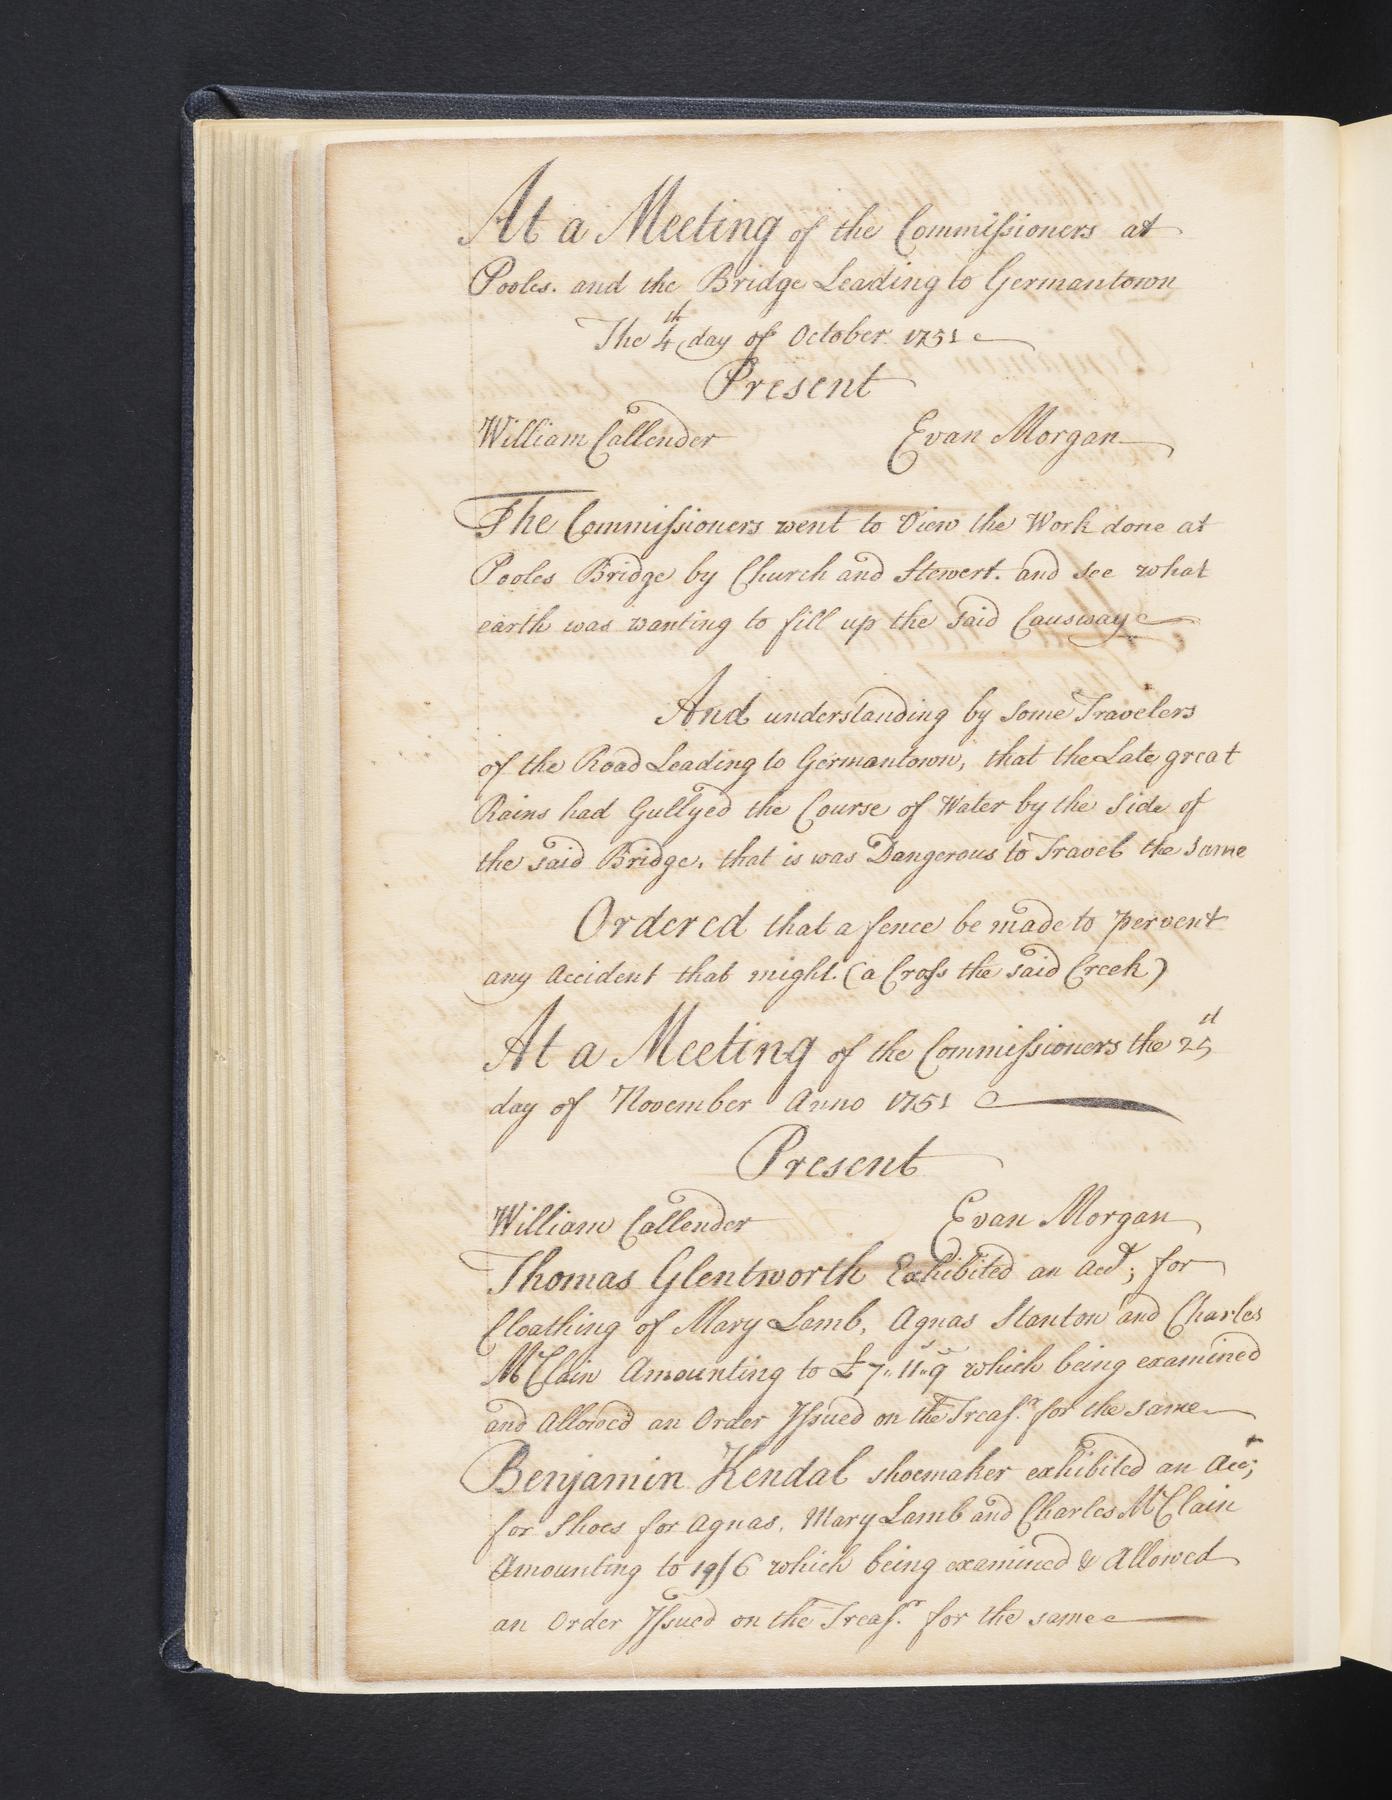 At a Meeting of the Commissioners at
Pooles. and the Bridge Leading to Germantown
The 4th day of October 1751
Present
William Callender Evan Morgan
The Commissioners went to View the Work done at
Pooles Bridge by Church and Stewert. and see what
earth was wanting to fill up the said Causway
And understanding by some Travelers
of the Road Leading to Germantown, that the Late great
Rains had Gullyed the Course of Water by the Side of
the said Bridge, that is was Dangerous to Travel the same
Ordered that a fence be made to pervent
any accident that might. (a Cross the said Creek)
At a Meeting of the Commissioners the 25th
day of November Anno 1751
Present
William Callender Evan Morgan
Thomas Glentworth Exhibited an acct; for
Cloathing of Mary Lamb, Agnas Stanton and Charles
McClain Amounting to £7"11"9 which being examined
and Allowed an Order Issued on the Treasr. for the same
Benjamin Kendal shoemaker exhibited an Acct;
for Shoes for Agnas, Mary Lamb and Charles McClain
Amounting to 19/6 which being examined & Allowed
an Order Issued on the Treasr. for the same